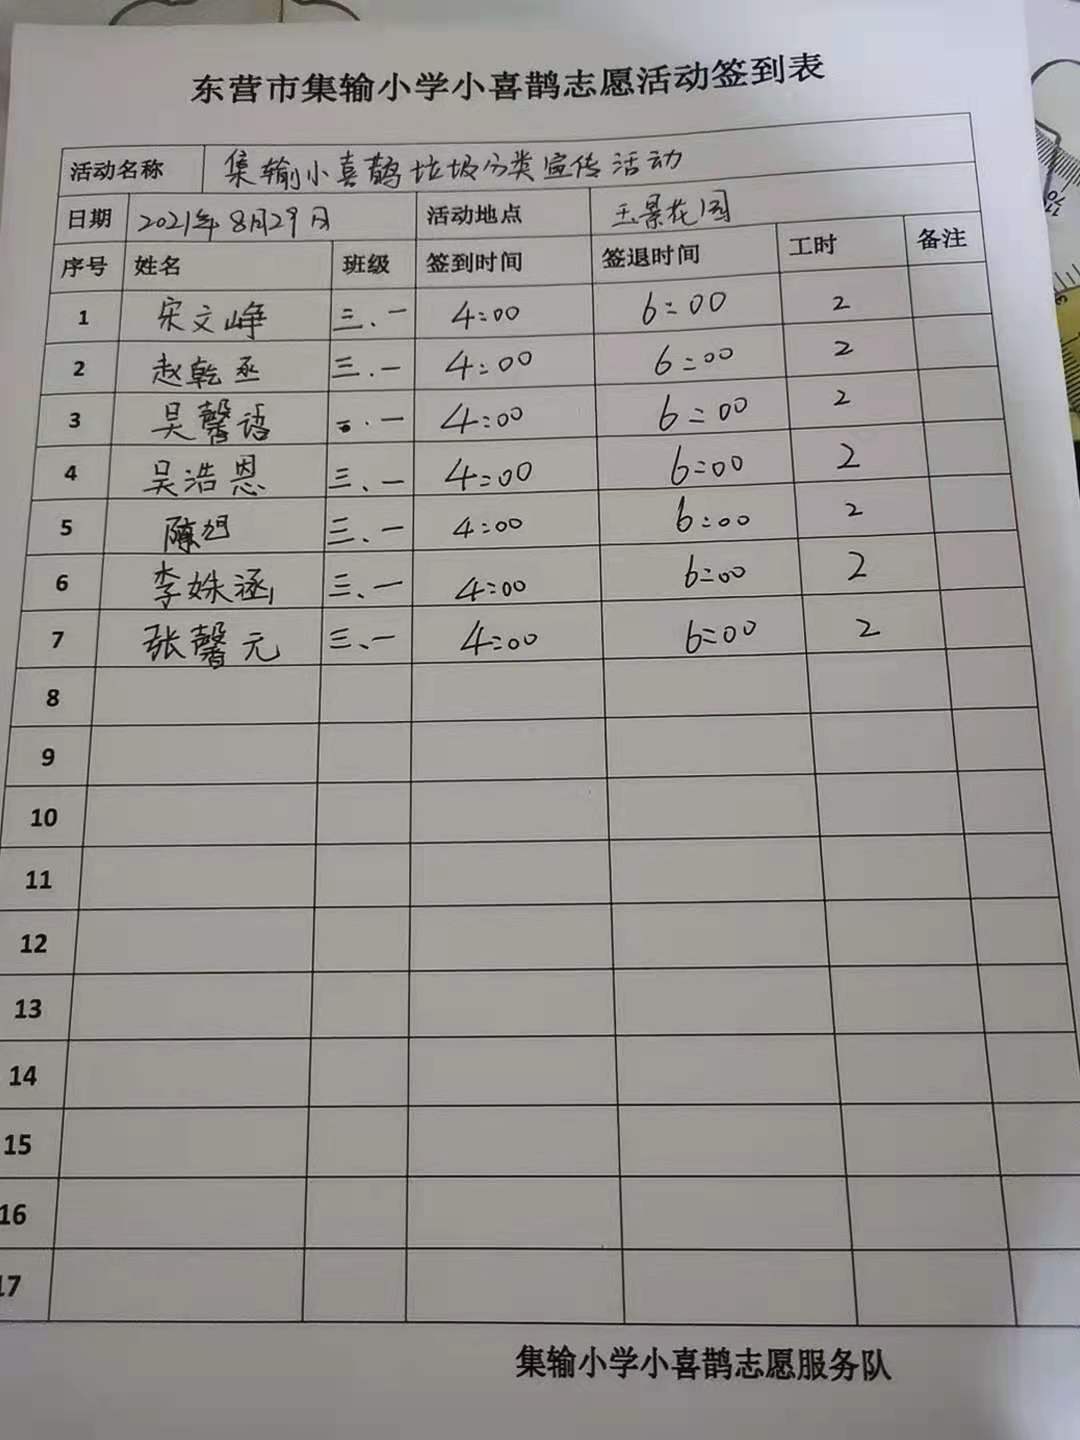 东营市集输小学小喜鹊志愿活动签到表
活动名称 集输小喜鹊垃圾分类宣传活动
日期 2021年8月29日 活动地点 玉景花园
序号 姓名 班级 签到时间 签退时间 工时 备注
1 宋文峥 三、一 4:00 6:00 2
2 赵乾丞 三、一 4:00 6:00 2
3 吴馨语 三、一 4:00 6:00 2
4 吴浩恩 三、一 4:00 6:00 2
5 陈旭 三、一 4:00 6:00 2
6 李姝涵 三、一 4:00 6:00 2
7 张馨元 三、一 4:00 6:00 2
8
9
10
11
12
13
14
15
16
17
集输小学小喜鹊志愿服务队